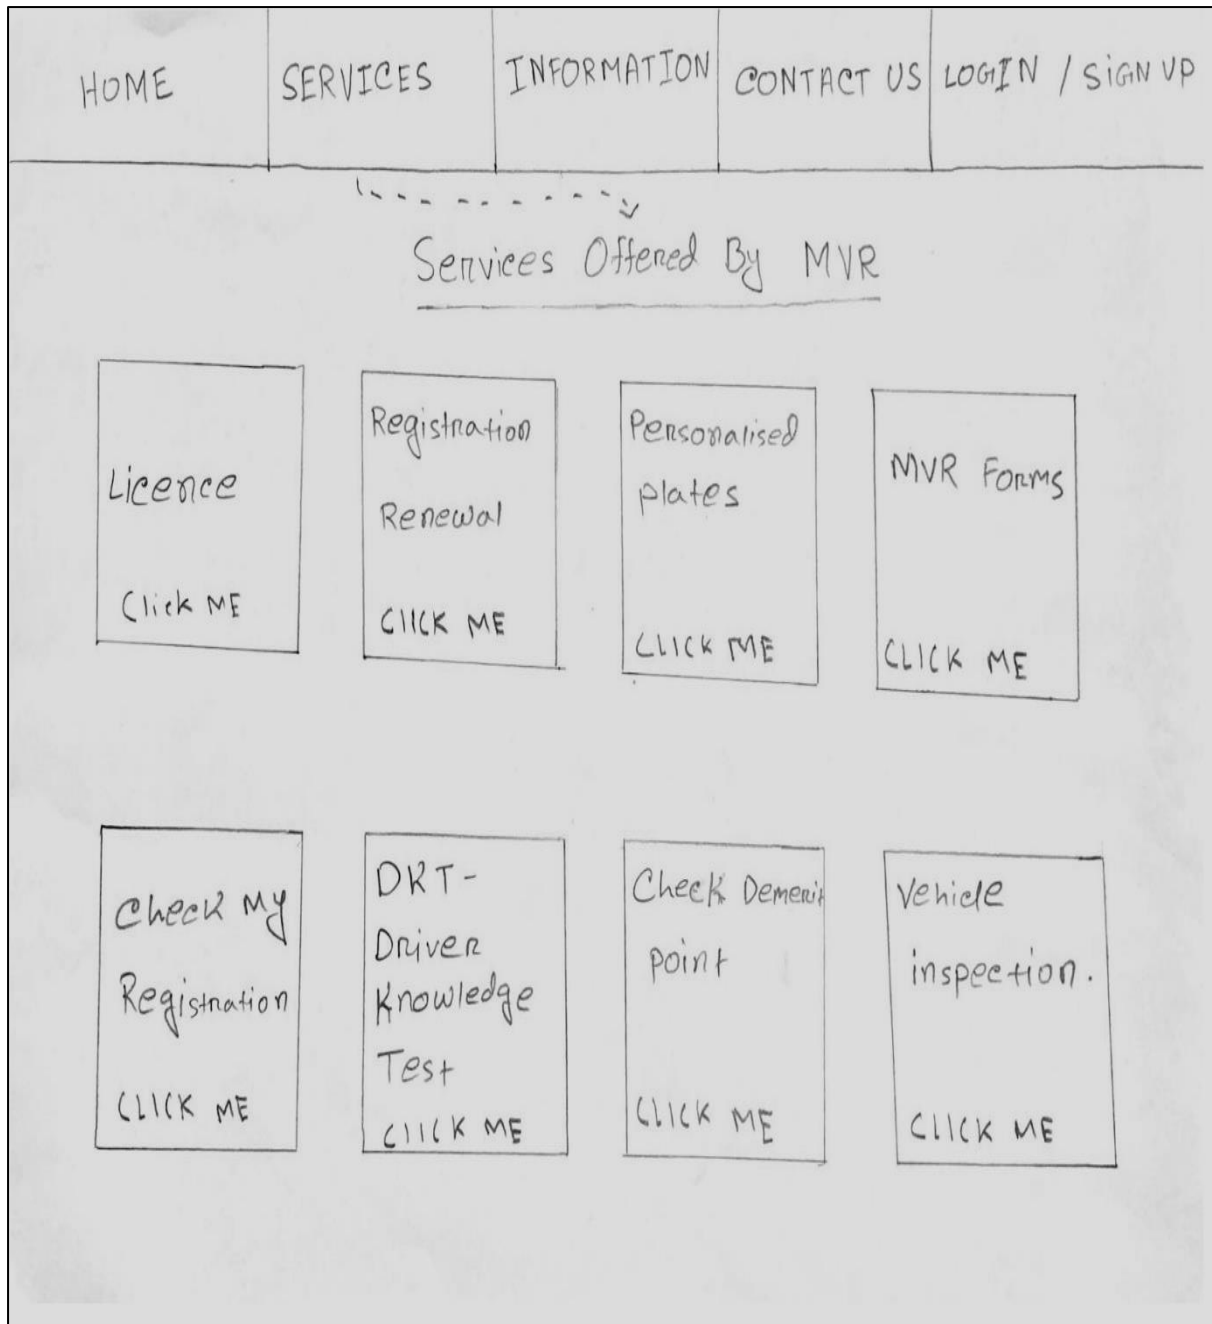 HOME SERVICES INFORMATION CONTACT US LOGIN / SIGN UP
Services Offered By MVR
Licence
Click ME
Registration
Renewal
CLICK ME
Personalised
plates
CLICK ME
MVR FORMS
CLICK ME
Check My
Registration
CLICK ME
DKT-
Driver
Knowledge
Test
CLICK ME
Check Demerit
point
CLICK ME
Vehicle
inspection.
CLICK ME